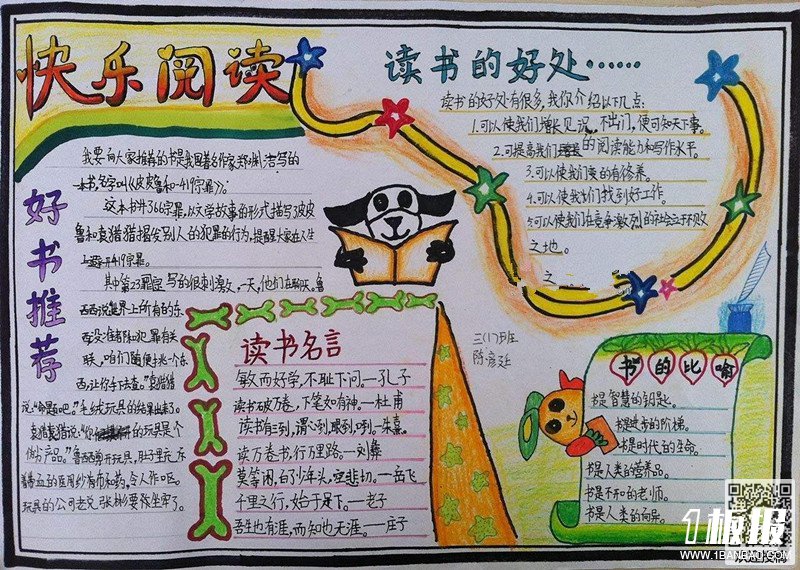 快乐阅读
好书推荐
我要向大家推荐的书是我国著名作家郑渊洁写的
一本书名字叫《皮皮鲁和419宗罪》。
这本书共366宗罪,以文学故事的形式描写了皮皮
鲁和袁猎猎揭发别人的犯罪的行为,提醒大家在人生
上避开419宗罪。
其中第23宗罪写的很刺激,一天,他们在聊天,鲁
西西说世界上所有的东
西没准都和犯罪有关
联,咱们随便挑一个东
西,让你手下去查。"袁猎猎
说:"毛绒玩具的结果出来了。
袁猎猎说:"你的玩具是个
伪劣产品。"鲁西西剪开玩具,肚子里
的医用纱布和药,令人作呕。
玩具的公司老总张彬要张坐牢了。
读书名言
敏而好学,不耻下问。—孔子
读书破万卷,下笔如有神。—杜甫
读书有三到,谓心到眼到口到。—朱熹
读万卷书,行万里路。—刘彝
莫等闲,白了少年头,空悲切。—岳飞
千里之行,始于足下。—老子
吾生也有涯,而知也无涯。—庄子
读书的好处……
读书的好处有很多,我你介绍以下几点:
1.可以使我们增长见识,不出门,便可知天下事。
2.可提高我们的阅读能力和写作水平。
3.可以使我们变的有修养。
4.可以使我们找到好工作。
5.可以使我们在竞争激烈的社会立于不败
之地。
之
三(17)班
陈
书的比喻
书是智慧的钥匙。
书是进步的阶梯。
书是时代的生命。
书是人类的营养品。
书是不和的老师。
书是人类的
1板报
WWW.1BANBAO.COM
欢迎投稿